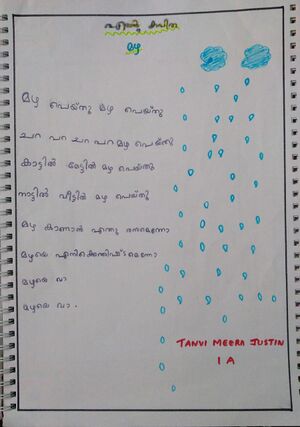 എന്റെ കവിത
മഴ
മഴ പെയ്തു മഴ പെയ്തു
ചറ പറ ചറ പറ മഴ പെയ്തു
കാട്ടിൽ മേട്ടിൽ മഴ പെയ്തു
നാട്ടിൽ വീട്ടിൽ മഴ പെയ്തു
മഴ കാണാൻ എന്തു രസമെന്നോ
മഴയെ എനിക്കെന്തിഷ്ടമെന്നോ
മഴയെ വാ
മഴയെ വാ .
TANVI MEERA JUSTIN
1 A